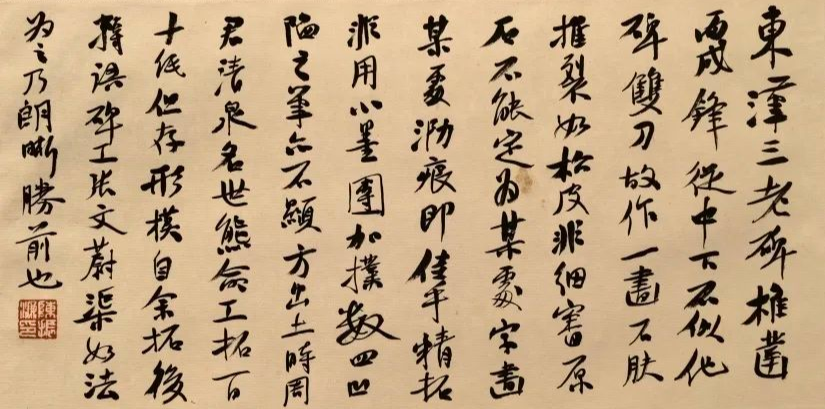 東漢三老碑椎鑿
而成鋒從中下不似他
碑雙刀故作一畫石膚
摧裂如松皮非細審原
石不能定為某處字畫
某處泐痕即佳手精拓
非用小墨團加撲數四凹
陷之筆亦不顯方出土時周
君清泉名世熊命工拓百
十紙但存形模自余拓後
轉語碑工張文蔚渠如法
為之乃朗晰勝前也
陳振濂印